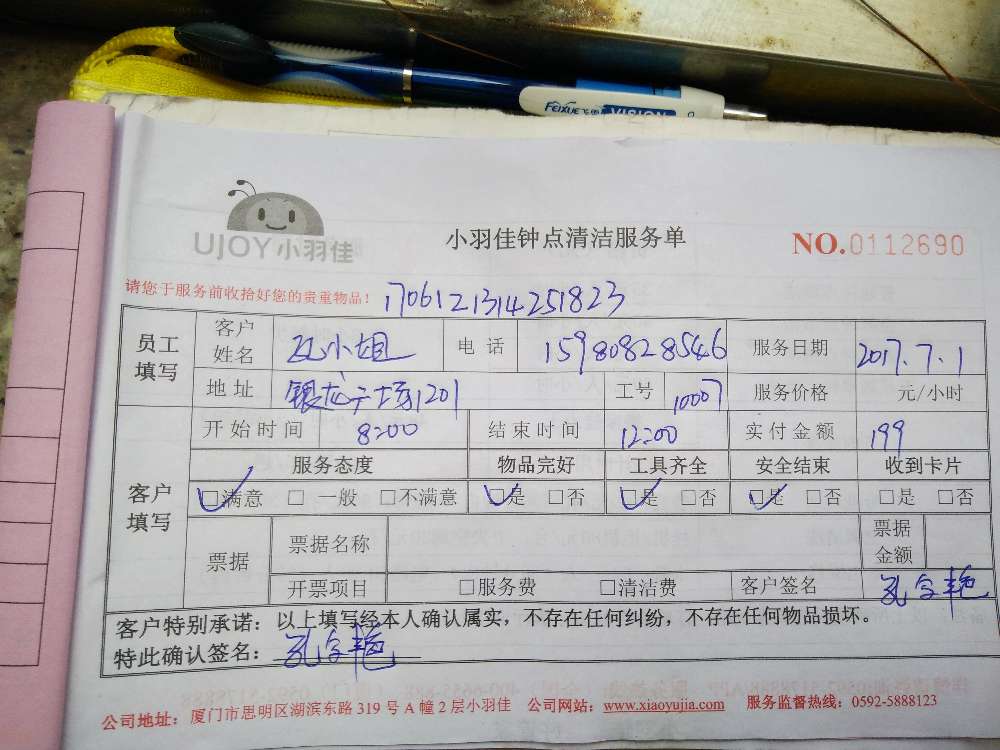 FEIXUE飞雪 VISION
UJOY小羽佳
小羽佳钟点清洁服务单
NO.0112690
请您于服务前收拾好您的贵重物品!
170612131425 1823
员工填写 客户姓名 孔小姐 电话 15980828546 服务日期 2017.7.1
地址 银龙广场1201 工号 10007 服务价格 元/小时
客户填写 开始时间 8:00 结束时间 12:00 实付金额 199
服务态度 物品完好 工具齐全 安全结束 收到卡片
☑满意 □一般 □不满意 ☑是 □否 ☑是 □否 ☑是 □否 □是 □否
票据 票据名称 票据金额
开票项目 □服务费 □清洁费 客户签名 孔令艳
客户特别承诺:以上填写经本人确认属实,不存在任何纠纷,不存在任何物品损坏。
特此确认签名:孔令艳
公司地址:厦门市思明区湖滨东路 319 号 A 幢 2 层小羽佳 公司网站:www.xiaoyujia.com 服务监督热线:0592-5888123